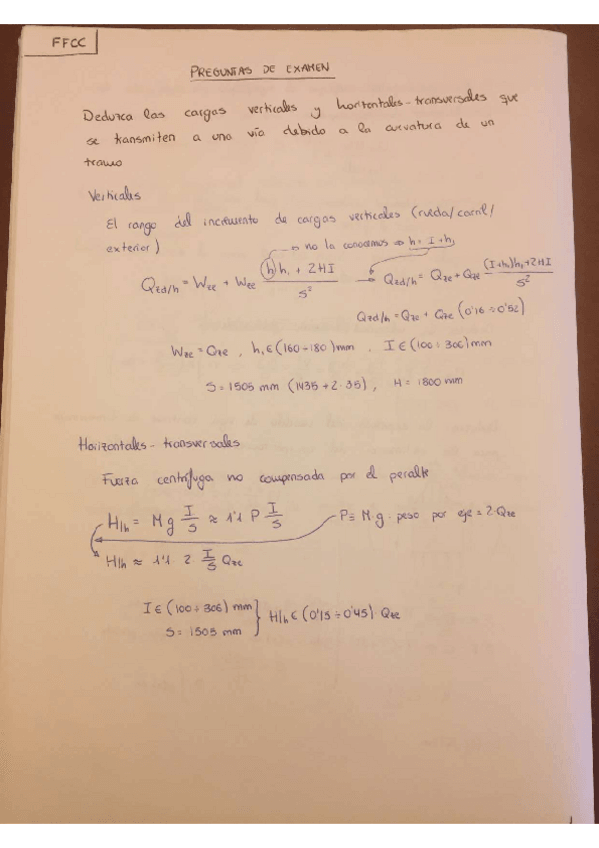 FFCC
PREGUNTAS DE EXAMEN
Deduzca las cargas verticales y horizontales-transversales que
se transmiten a una vía debido a la curvatura de un
tramo
Verticales
El rango del incremento de cargas verticales (rueda/carril/
exterior)
no la conocemos ⇒ h = I + h₁
Qzd/h = Wze + Wze (h)h₁ + 2HI / S² → Qzd/h = Qze + Qze (I+h₁)h₁+2HI / S²
Qzd/h = Qze + Qze (0'16 ÷ 0'52)
Wze = Qze , h₁ ∈ (160÷180) mm , I ∈ (100÷306) mm
S = 1505 mm (1435 + 2·35) , H = 1800 mm
Horizontales - transversales
Fuerza centrífuga no compensada por el peralte
H/h = M g I/S ≈ 1'1 P I/S P ≡ M·g · peso por eje = 2·Qze
H/h ≈ 1'1 · 2 I/S Qze
I ∈ (100÷306) mm
S = 1505 mm } H/h ∈ (0'15 ÷ 0'45) Qze